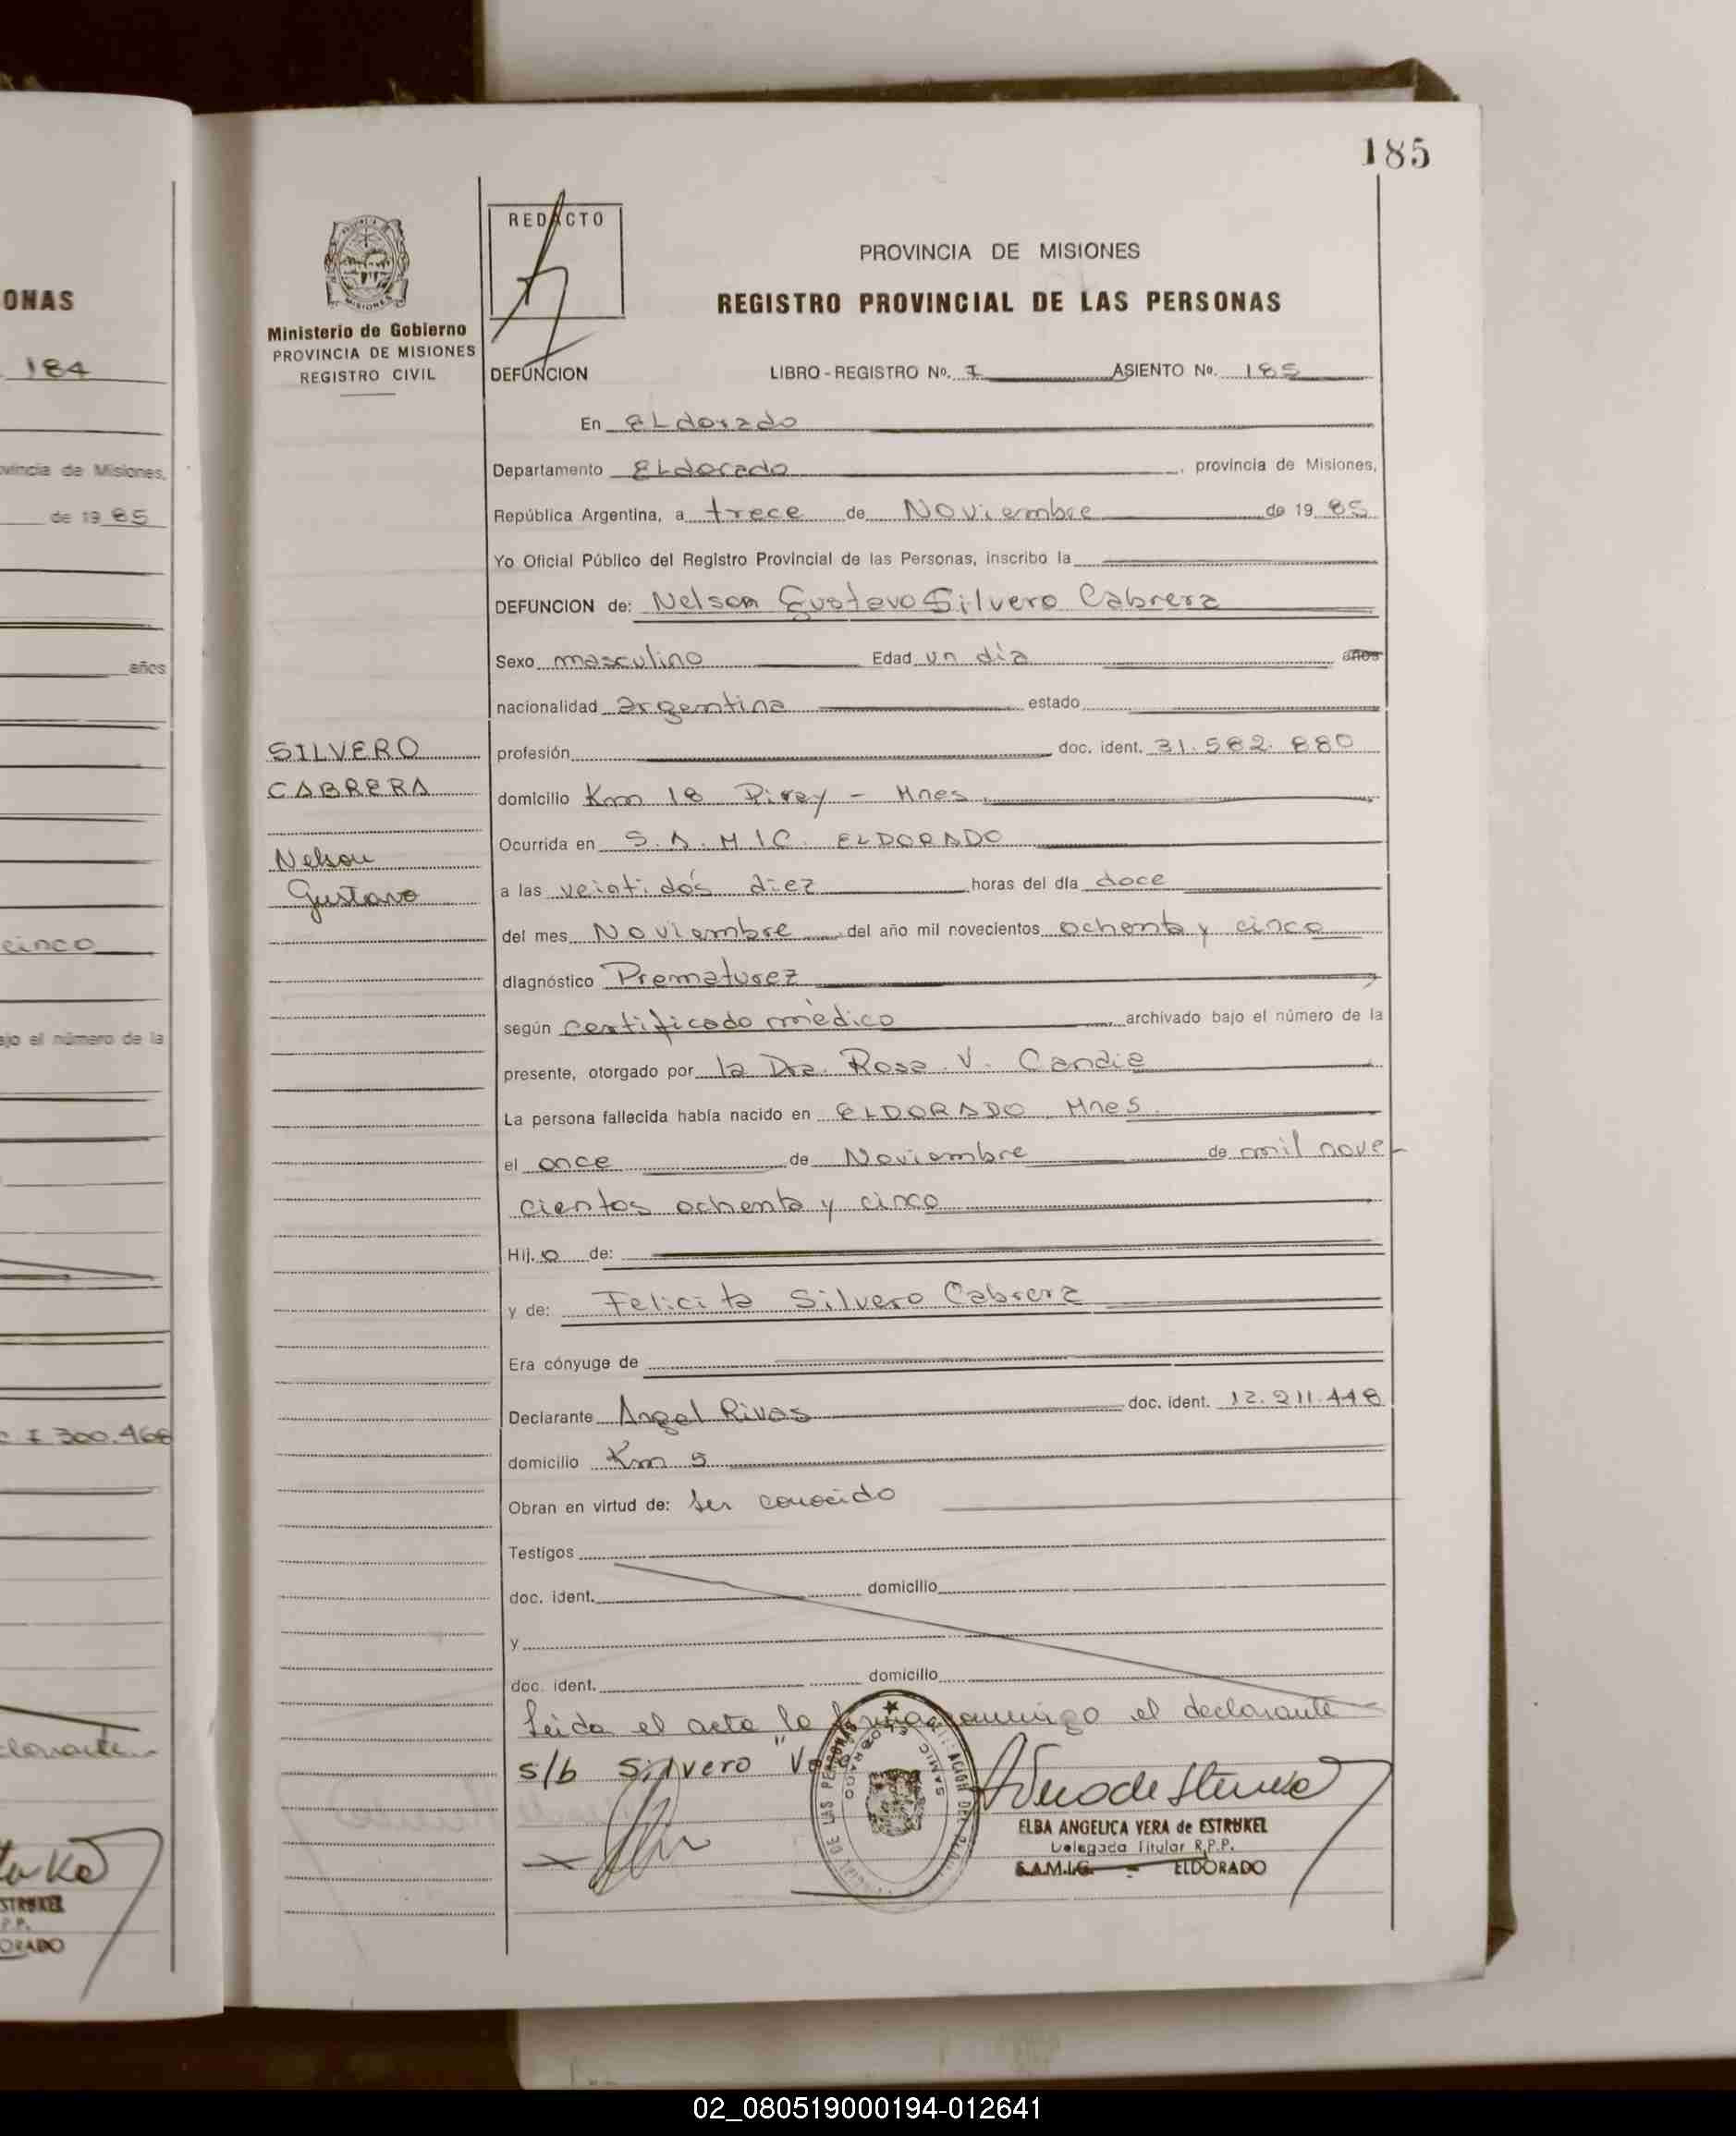 185
ONAS
184
vincia de Misiones,
de 19 85
años
cinco
ajo el número de la
300.468
clarante
STRUKEL
P.P.
ORADO
MISIONES
Ministerio de Gobierno
PROVINCIA DE MISIONES
REGISTRO CIVIL
REDACTO
PROVINCIA DE MISIONES
REGISTRO PROVINCIAL DE LAS PERSONAS
DEFUNCION LIBRO - REGISTRO Nº. I ASIENTO Nº. 185
En ELdorado
Departamento ELdorado , provincia de Misiones,
República Argentina, a trece de Noviembre de 19 85
Yo Oficial Público del Registro Provincial de las Personas, inscribo la
DEFUNCION de: Nelson Gustavo Silvero Cabrera
Sexo masculino Edad un día años
nacionalidad argentina estado
SILVERO
CABRERA
Nelson
Gustavo
profesión doc. ident. 31.582.880
domicilio Km 18 Piray - Mnes.
Ocurrida en S.A.M.I.C. ELDORADO
a las veintidós diez horas del día doce
del mes Noviembre del año mil novecientos ochenta y cinco
diagnóstico Prematurez
según certificado médico archivado bajo el número de la
presente, otorgado por la Dra. Rosa V. Candia
La persona fallecida había nacido en ELDORADO, Mnes.
el once de Noviembre de mil nove-
cientos ochenta y cinco
Hij.o de:
y de: Felicita Silvero Cabrera
Era cónyuge de
Declarante Angel Rivas doc. ident. 12.211.448
domicilio Km 9
Obran en virtud de: ser conocido
Testigos
doc. ident. domicilio
y
doc. ident. domicilio
Leida el acta la firma conmigo el declarante
s/b Silvero "V
ELBA ANGELICA VERA de ESTRUKEL
Delegada Titular R.P.P.
S.A.M.I.C. - ELDORADO
02_080519000194-012641